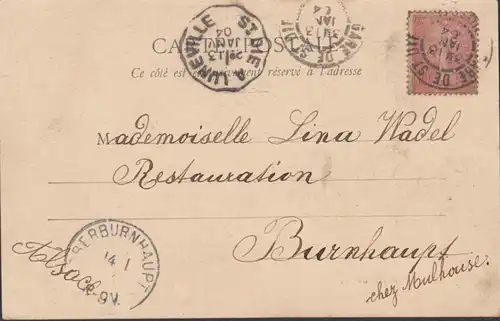 CARTE POSTALE
Ce côté est exclusivement réservé à l'adresse
ST DIÉ À LUNÉVILLE
13
JANV
04
GARE DE ST DIÉ
13
JANV
04
GARE DE ST DIÉ
13
JANV
04
Mademoiselle Lina Wadel
Restauration
Burnhaupt
chez Mulhouse.
Alsace
OBERBURNHAUPT
14 1
9 V.